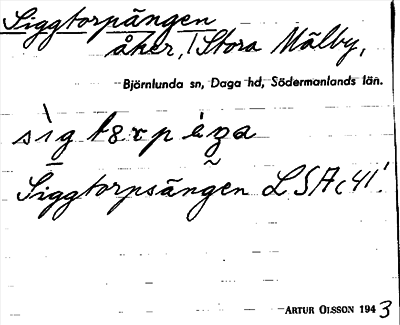 Siggtorpängen
åker, Stora Mälby,
Björnlunda sn, Daga hd, Södermanlands län.
Siggtorpsängen LSA
ARTUR OLSSON 1943